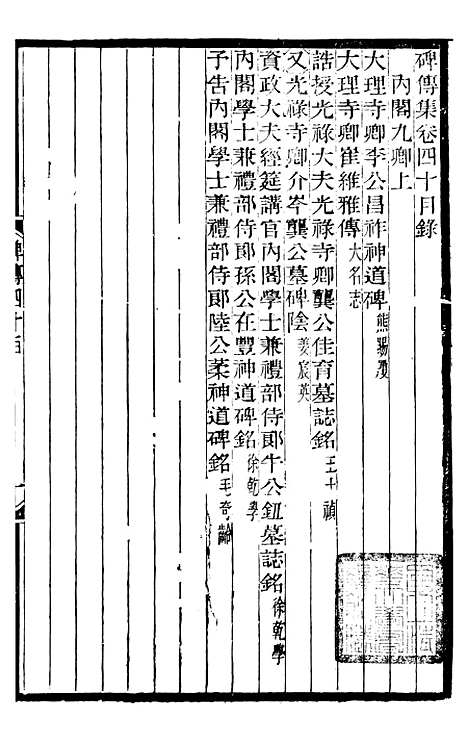 碑傳集卷四十目錄
內閣九卿上
大理寺卿李公昌祚神道碑熊賜履
大理寺卿崔維雅傳大名志
誥授光祿大夫光祿寺卿龔公佳育墓誌銘王士禎
又光祿寺卿介岑龔公墓碑陰姜宸英
資政大夫經筵講官內閣學士兼禮部侍郞牛公鈕墓誌銘徐乾學
內閣學士兼禮部侍郞孫公在豐神道碑銘徐乾學
予告內閣學士兼禮部侍郞陸公棻神道碑銘毛奇齡
碑傳四十